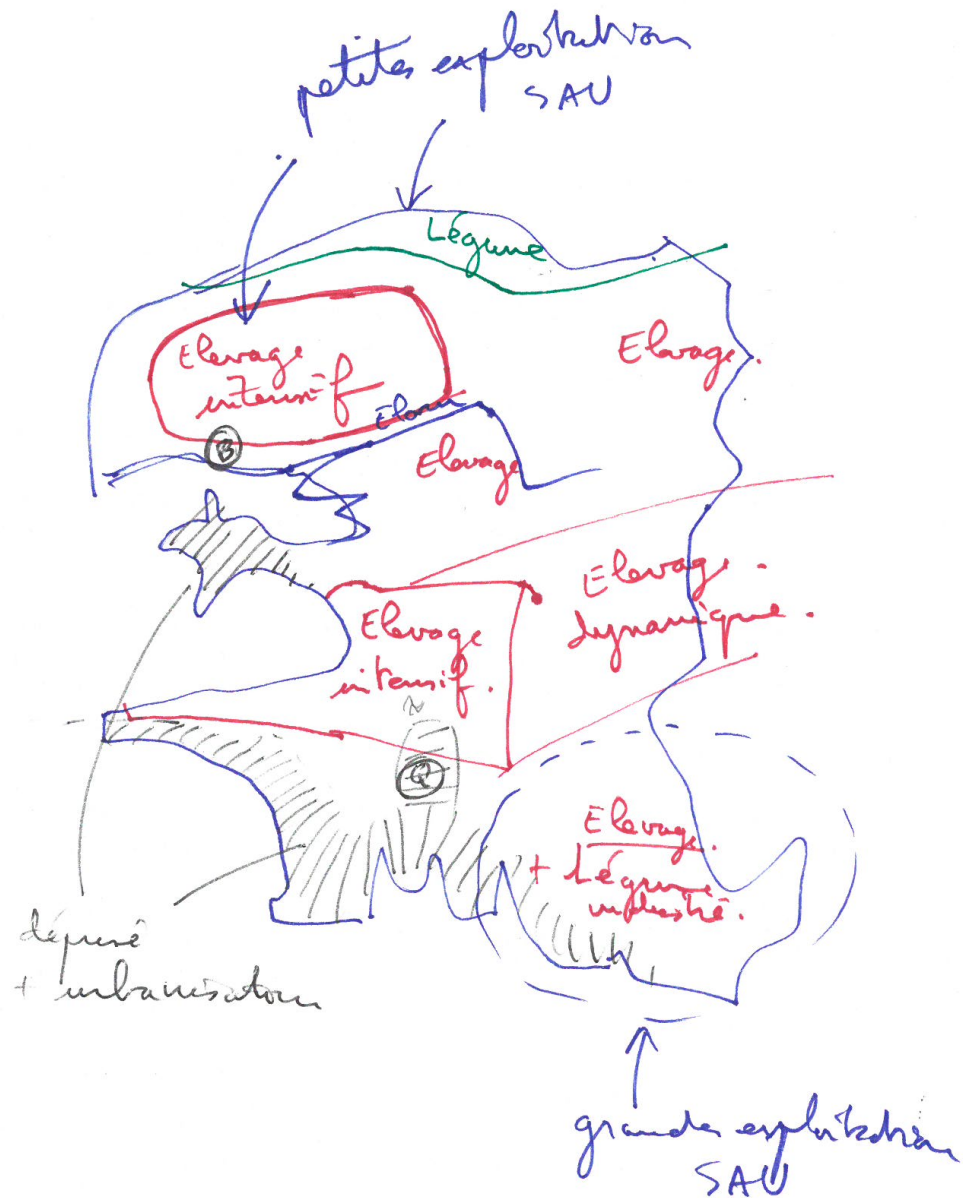 petites exploitations
SAU
Légume
Elevage
intensif
Elevage.
Elorn
B
Elevage
Elevage.
dynamique.
Elevage
intensif.
Q
Elevage.
+ Légume
industrie.
déprise
+ urbanisation
grandes exploitations
SAU